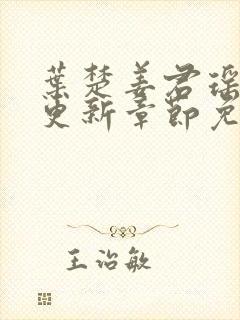 葉楚姜君瑶
更新章節免
王治敏